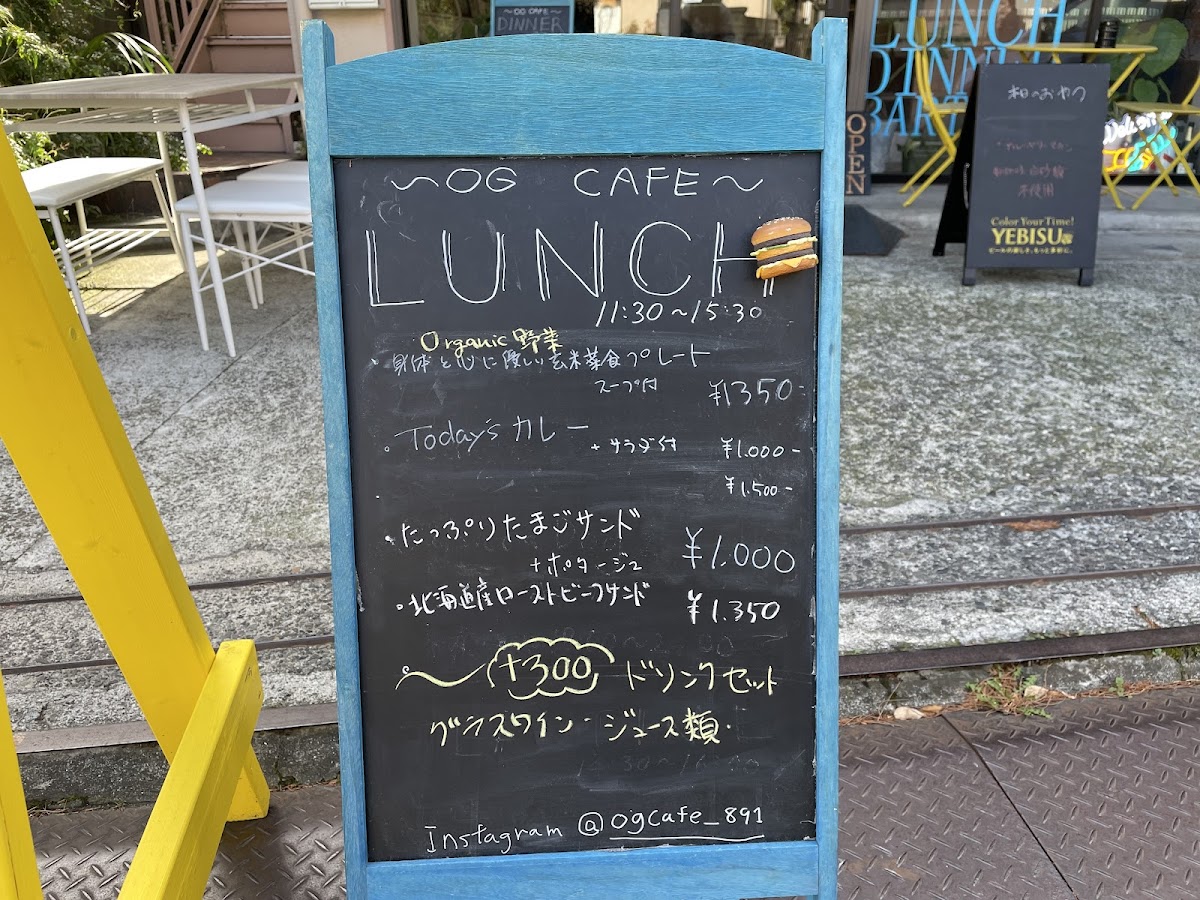 〜OG CAFE〜
DINNER
LUNCH
DINN
BART
OPEN
本日のおやつ
不使用
Color Your Time!
YEBISU
ビールの楽しさ、もっと多彩に。
〜OG CAFE〜
LUNCH
11:30〜15:30
Organic 野菜
・身体と心に優しい玄米菜食プレート
スープ付 ¥1350-
・Today's カレー +サラダ付 ¥1.000-
¥1.500-
・たっぷりたまごサンド
+ポタージュ ¥1.000
・北海道産ローストビーフサンド ¥1.350
+300 ドリンクセット
グラスワイン・ジュース類・
Instagram @ogcafe_891